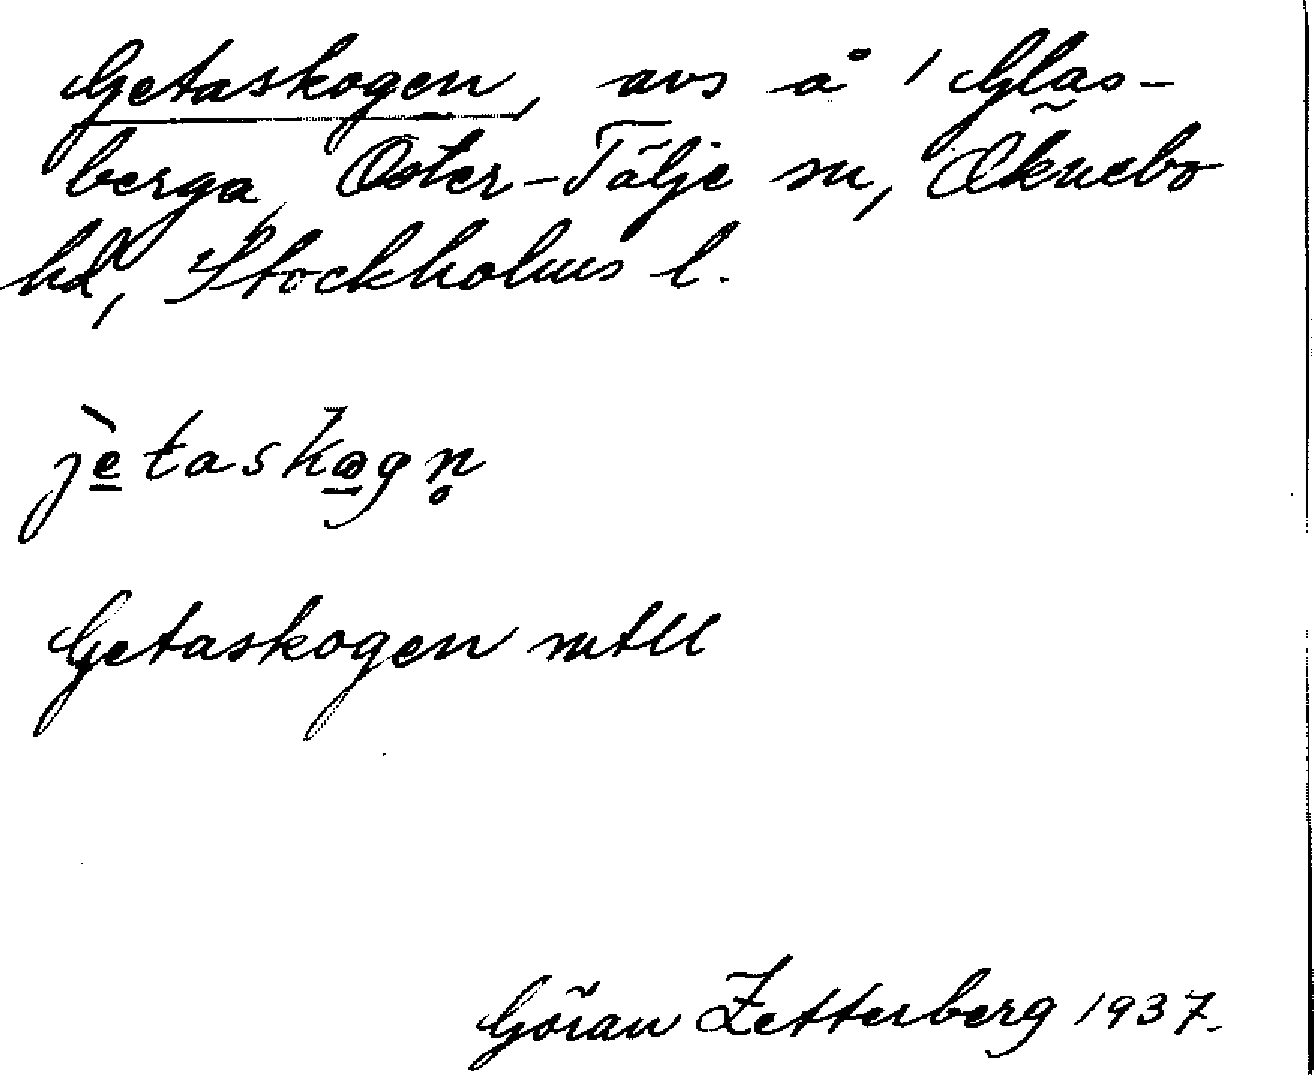 Getaskogen, avs å 1 Glas-
berga, Öster-Tälje sn, Öknebo
hd, Stockholms l.
jètaskogn̥
Getaskogen mtll
Göran Zetterberg 1937.